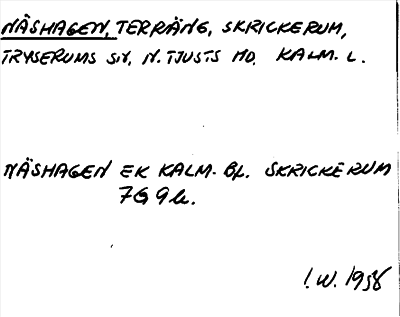 NÄSHAGEN, TERRÄNG, SKRICKERUM,
TRYSERUMS SN, N. TJUSTS HD, KALM. L.
NÄSHAGEN EK KALM. BL. SKRICKERUM
7G 9b.
I.W. 1958